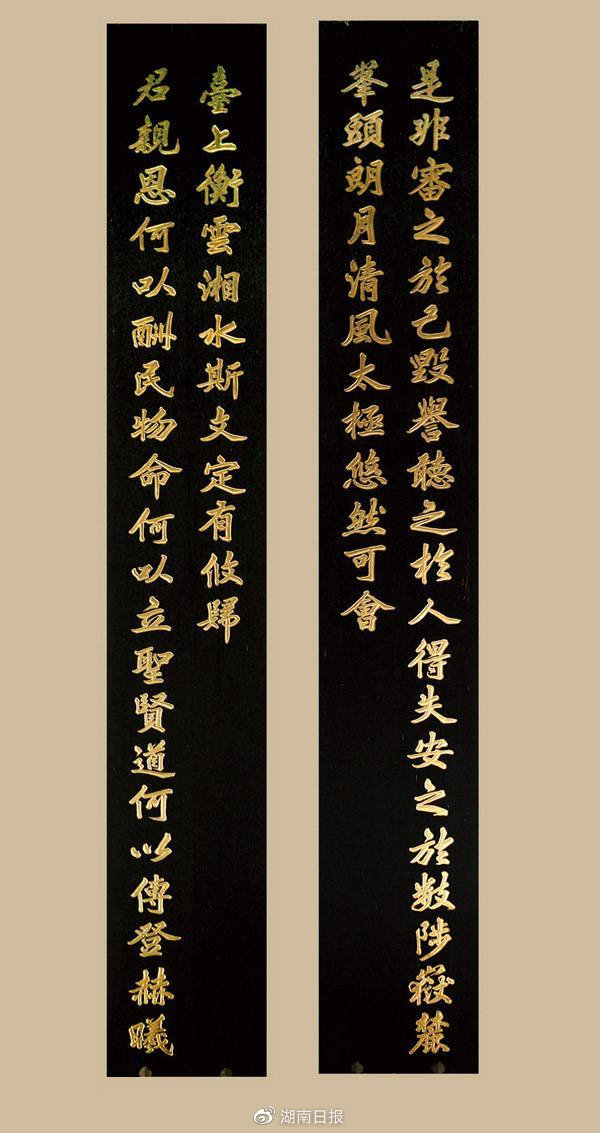 是非審之於己毀譽聽之於人得失安之於数陟嶽麓
峯頭朗月清風太極悠然可會
君親恩何以酬民物命何以立聖賢道何以傳登赫曦
臺上衡雲湘水斯文定有攸歸
湖南日报